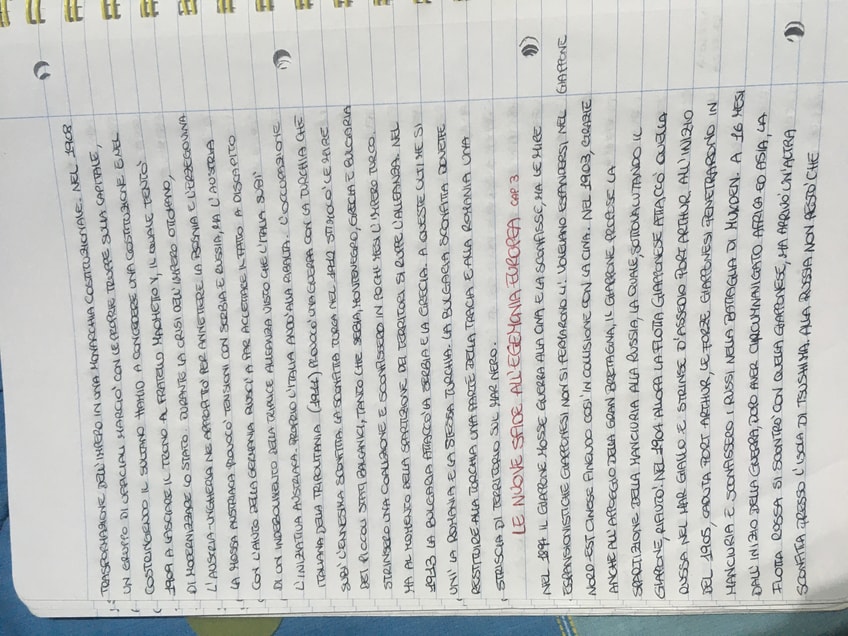 TRASFORMAZIONE DELL'IMPERO IN UNA MONARCHIA COSTITUZIONALE. NEL 1908
UN GRUPPO DI UFFICIALI MARCIÒ CON LE PROPRIE TRUPPE SULLA CAPITALE,
COSTRINGENDO IL SULTANO HAMID A CONCEDERE UNA COSTITUZIONE E NEL
1909 A LASCIARE IL TRONO AL FRATELLO MAOMETTO V, IL QUALE TENTÒ
DI MODERNIZZARE LO STATO. DURANTE LA CRISI DELL'IMPERO OTTOMANO,
L'AUSTRIA-UNGHERIA NE APPROFITTÒ PER ANNETTERE LA BOSNIA E L'ERZEGOVINA
LA MOSSA AUSTRIACA PROVOCÒ TENSIONI CON SERBIA E RUSSIA, MA L'AUSTRIA
CON L'AIUTO DELLA GERMANIA RIUSCÌ A FAR ACCETTARE IL FATTO A DISCAPITO
DI UN INDEBOLIMENTO DELLA TRIPLICE ALLEANZA VISTO CHE L'ITALIA SUBÌ
L'INIZIATIVA AUSTRIACA. PROPRIO L'ITALIA ANDÒ ALLA RIBALTA. L'OCCUPAZIONE
ITALIANA DELLA TRIPOLITANIA (1911) PROVOCÒ UNA GUERRA CON LA TURCHIA CHE
SUBÌ L'ENNESIMA SCONFITTA. LA SCONFITTA TURCA NEL 1912 STIMOLÒ LE MIRE
DEI PICCOLI STATI BALCANICI, TANTO CHE SERBIA, MONTENEGRO, GRECIA E BULGARIA
STRINSERO UNA COALIZIONE E SCONFISSERO IN POCHI MESI L'IMPERO TURCO.
MA AL MOMENTO DELLA SPARTIZIONE DEI TERRITORI SI RUPPE L'ALLEANZA. NEL
1913 LA BULGARIA ATTACCÒ LA SERBIA E LA GRECIA. A QUESTE ULTIME SI
UNÌ LA ROMANIA E LA STESSA TURCHIA. LA BULGARIA SCONFITTA DOVETTE
RESTITUIRE ALLA TURCHIA UNA PARTE DELLA TRACIA E ALLA ROMANIA UNA
STRISCIA DI TERRITORIO SUL MAR NERO.
LE NUOVE SFIDE ALL'EGEMONIA EUROPEA CAP 3
NEL 1894 IL GIAPPONE MOSSE GUERRA ALLA CINA E LA SCONFISSE, MA LE MIRE
ESPANSIONISTICHE GIAPPONESI NON SI FERMARONO LÌ. VOLEVANO ESPANDERSI, NEL GIAPPONE
NORD-EST CINESE FINENDO COSÌ IN COLLISIONE CON LA CINA. NEL 1903, GRAZIE
ANCHE ALL'APPOGGIO DELLA GRAN BRETAGNA, IL GIAPPONE PROPOSE LA
SPARTIZIONE DELLA MANCIURIA ALLA RUSSIA, LA QUALE, SOTTOVALUTANDO IL
GIAPPONE, RIFIUTÒ. NEL 1904 ALLORA LA FLOTTA GIAPPONESE ATTACCÒ QUELLA
RUSSA NEL MAR GIALLO E STRINSE D'ASSEDIO PORT ARTHUR. ALL'INIZIO
DEL 1905, CADUTA PORT ARTHUR, LE FORZE GIAPPONESI PENETRARONO IN
MANCIURIA E SCONFISSERO I RUSSI NELLA BATTAGLIA DI MUKDEN. A 16 MESI
DALL'INIZIO DELLA GUERRA, DOPO AVER CIRCUMNAVIGATO AFRICA ED ASIA, LA
FLOTTA RUSSA SI SCONTRÒ CON QUELLA GIAPPONESE, MA ARRIVÒ UN'ALTRA
SCONFITTA PRESSO L'ISOLA DI TSUSHIMA. ALLA RUSSIA NON RESTÒ CHE